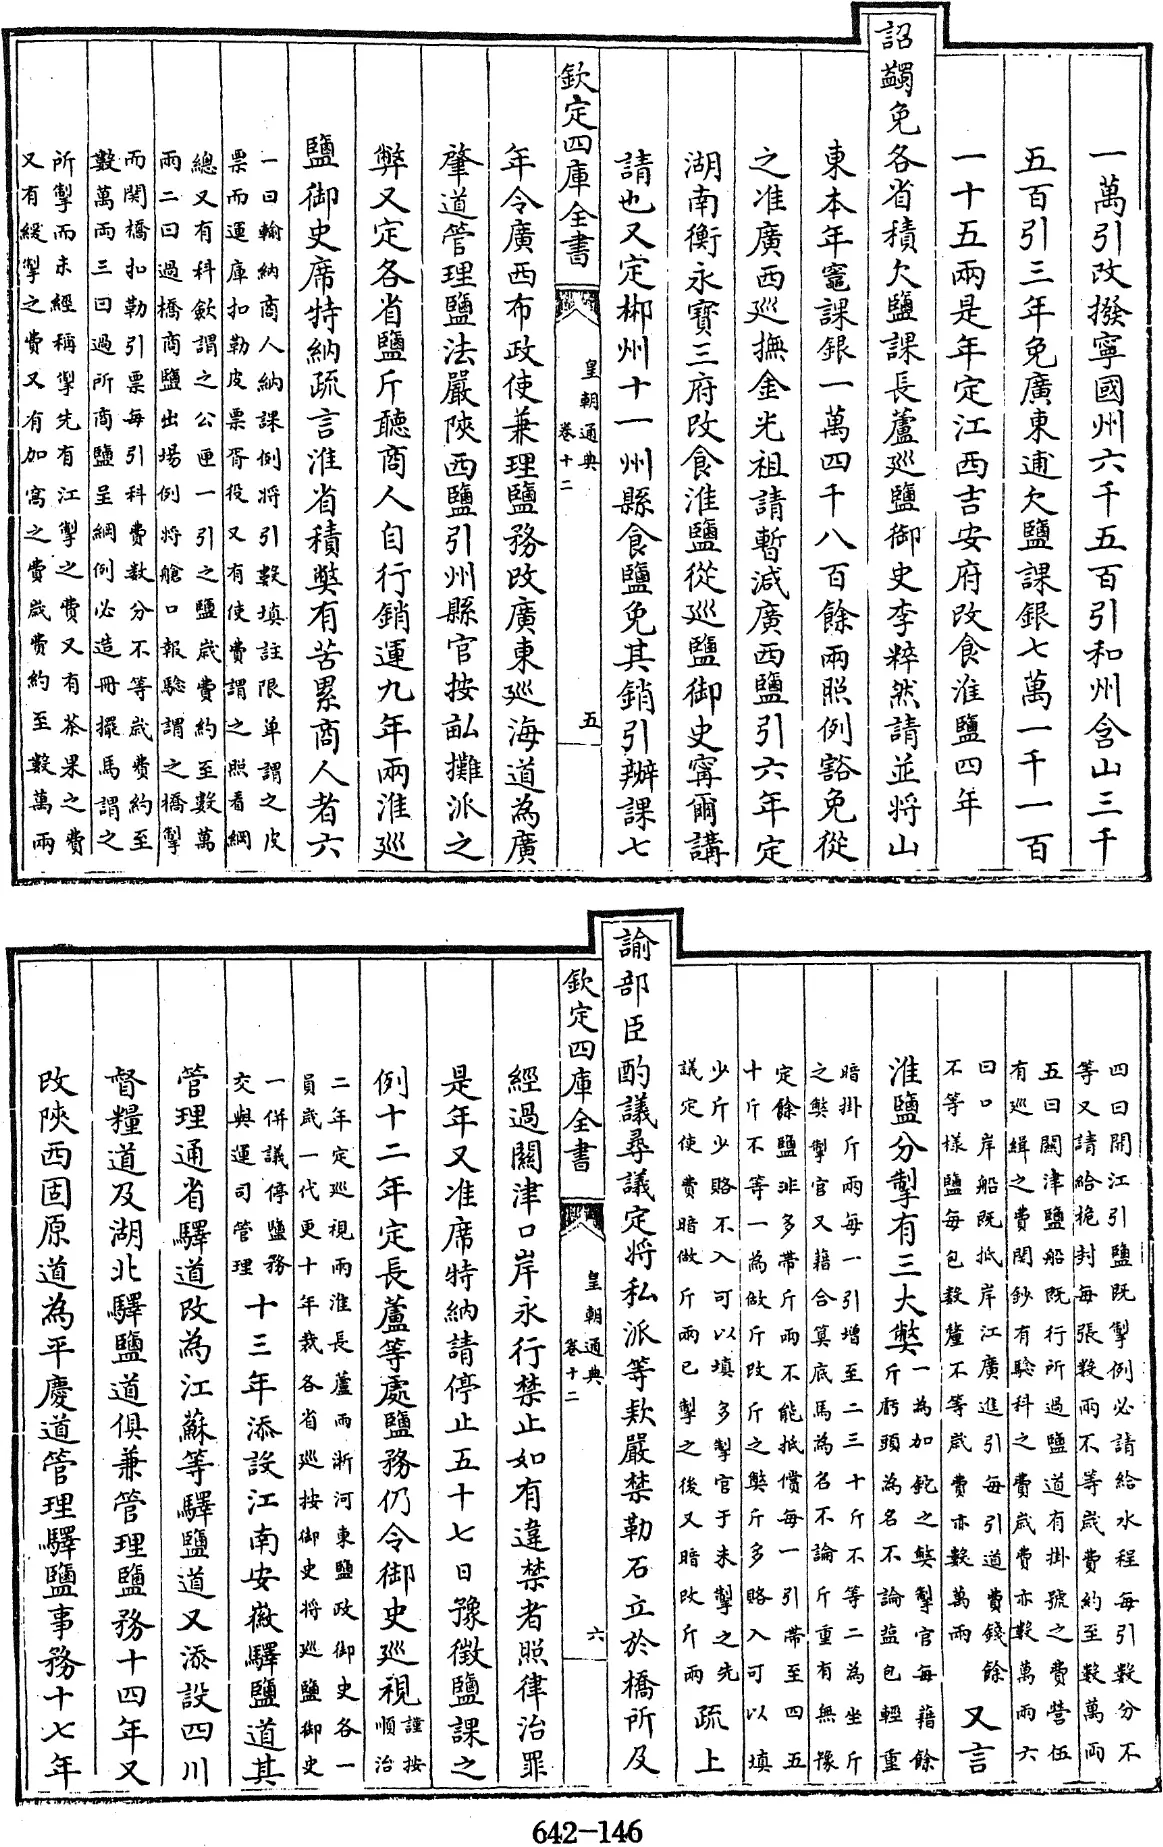 一萬引改撥寧國州六千五百引和州含山三千
五百引三年免廣東逋欠鹽課銀七萬一千一百
一十五兩是年定江西吉安府改食淮鹽四年
詔蠲免各省積欠鹽課長蘆巡鹽御史李粹然請並將山
東本年竈課銀一萬四千八百餘兩照例豁免從
之准廣西巡撫金光祖請暫減廣西鹽引六年定
湖南衡永寶三府改食淮鹽從巡鹽御史寗爾講
請也又定郴州十一州縣食鹽免其銷引辦課七
欽定四庫全書
皇朝通典
卷十二
五
年令廣西布政使兼理鹽務改廣東巡海道為廣
肇道管理鹽法嚴陝西鹽引州縣官按畝攤派之
弊又定各省鹽斤聽商人自行銷運九年兩淮巡
鹽御史席特納疏言淮省積獘有苦累商人者六
一曰輸納商人納課例將引數填註限单謂之皮
票而運庫扣勒皮票胥役又有使費謂之照看綱
總又有科歛謂之公匣一引之鹽歲費約至數萬
兩二曰過橋商鹽出場例將艙口報驗謂之橋掣
而関橋扣勒引票每引科費數分不等歲費約至
數萬兩三曰過所商鹽呈綱例必造冊擺馬謂之
所掣而未經稱掣先有江掣之費又有茶果之費
又有緩掣之費又有加窩之費歲費約至數萬兩
四曰開江引鹽既掣例必請給水程每引數分不
等又請給桅封每張數兩不等歲費約至數萬兩
五曰關津鹽船既行所過鹽道有掛號之費營伍
有巡緝之費関鈔有驗科之費歲費亦數萬兩六
曰口岸船既抵岸江廣進引每引道費錢餘
不等樣鹽每包數釐不等歲費亦數萬兩 又言
淮鹽分掣有三大獘一為加鉈之獘掣官每藉餘
斤虧頭為名不論盐包輕重
暗掛斤兩每一引增至二三十斤不等二為坐斤
之獘掣官又藉合算底馬為名不論斤重有無豫
定餘鹽非多帶斤兩不能抵償每一引帶至四五
十斤不等一為做斤改斤之獘斤多賂入可以填
少斤少賂不入可以填多掣官于未掣之先
議定使費暗做斤兩已掣之後又暗改斤兩 疏上
諭部臣酌議尋議定將私派等款嚴禁勒石立於橋所及
欽定四庫全書
皇朝通典
卷十二
六
經過關津口岸永行禁止如有違禁者照律治罪
是年又准席特納請停止五十七日豫徵鹽課之
例十二年定長蘆等處鹽務仍令御史巡視謹按
順治
二年定巡視兩淮長蘆兩浙河東鹽政御史各一
員歲一代更十年裁各省巡按御史將巡鹽御史
一併議停鹽務
交與運司管理 十三年添設江南安徽驛鹽道其
管理通省驛道改為江蘇等驛鹽道又添設四川
督糧道及湖北驛鹽道俱兼管理鹽務十四年又
改陝西固原道為平慶道管理驛鹽事務十七年
642-146